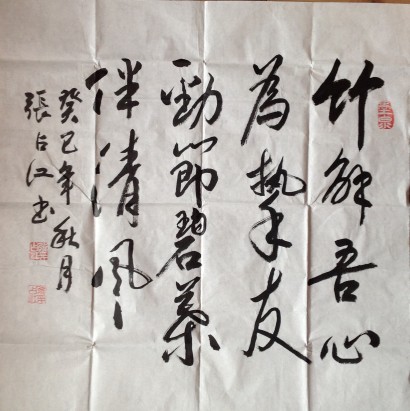 竹解吾心
為摯友
勁節碧葉
伴清風
癸巳年秋月
張占江書